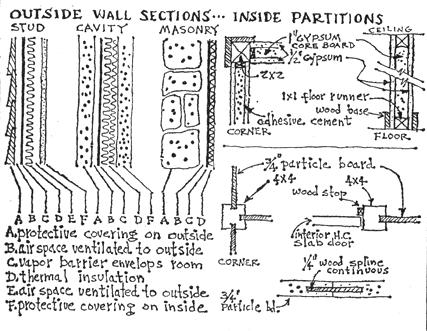 OUTSIDE WALL SECTIONS... INSIDE PARTITIONS
STUD CAVITY MASONRY
A B C D E F A B C D F A B C D
A. protective covering on outside
B. air space ventilated to outside
C. vapor barrier envelops room
D. thermal insulation
E. air space ventilated to outside
F. protective covering on inside
1" GYPSUM
CORE BOARD
1/2" GYPSUM
2x2
CEILING
1x1 floor runner
wood base
adhesive cement
CORNER
FLOOR
3/4" particle board
4x4
wood stop
4x4
interior, H.C.
slab door
CORNER
1/4" wood spline
continuous
3/4"
particle bd.